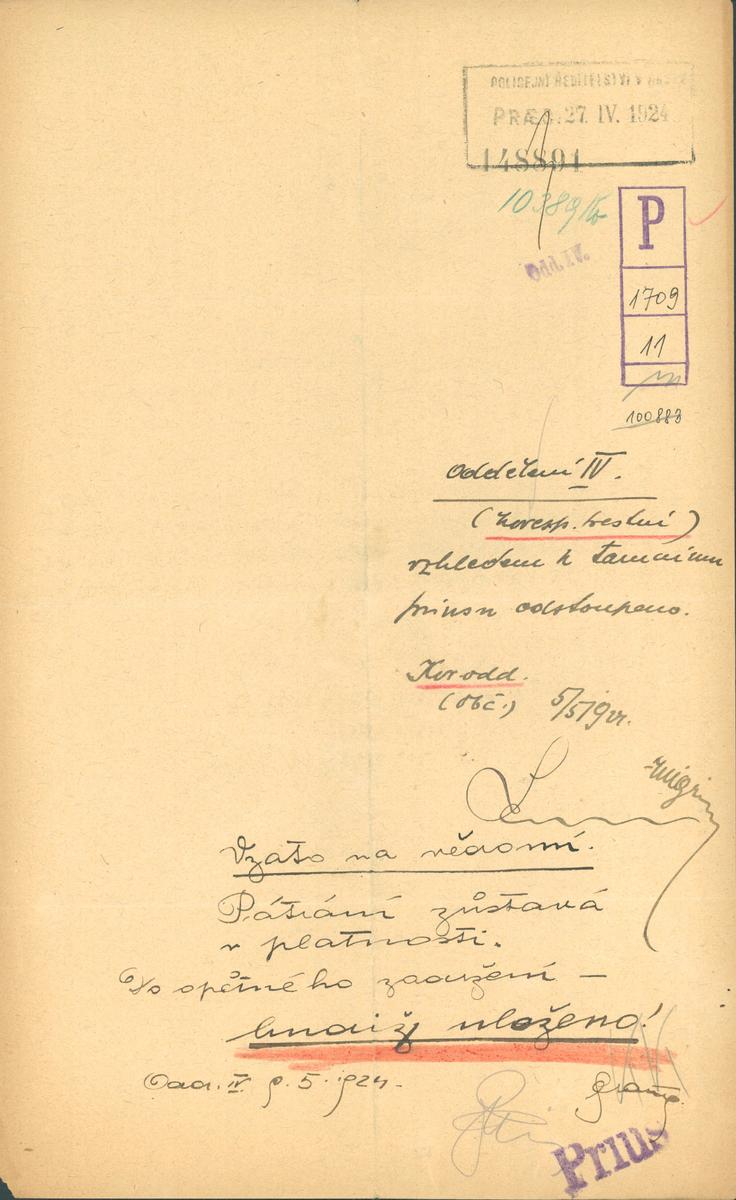 POLICEJNÍ ŘEDITELSTVÍ V
PRÆS. 27. IV. 1924
148891
10389
Odd. IV.
P
1709
11
100883
Oddělení IV.
(koresp. trestní)
vzhledem k tamnímu
priusu odstoupeno.
Kor odd.
(obč.) 5/5
Vzato na vědomí.
Pátrání zůstává
v platnosti.
Do opětného zadržení –
budiž uloženo!
Odd. IV 9. 5. 1924.
Prius